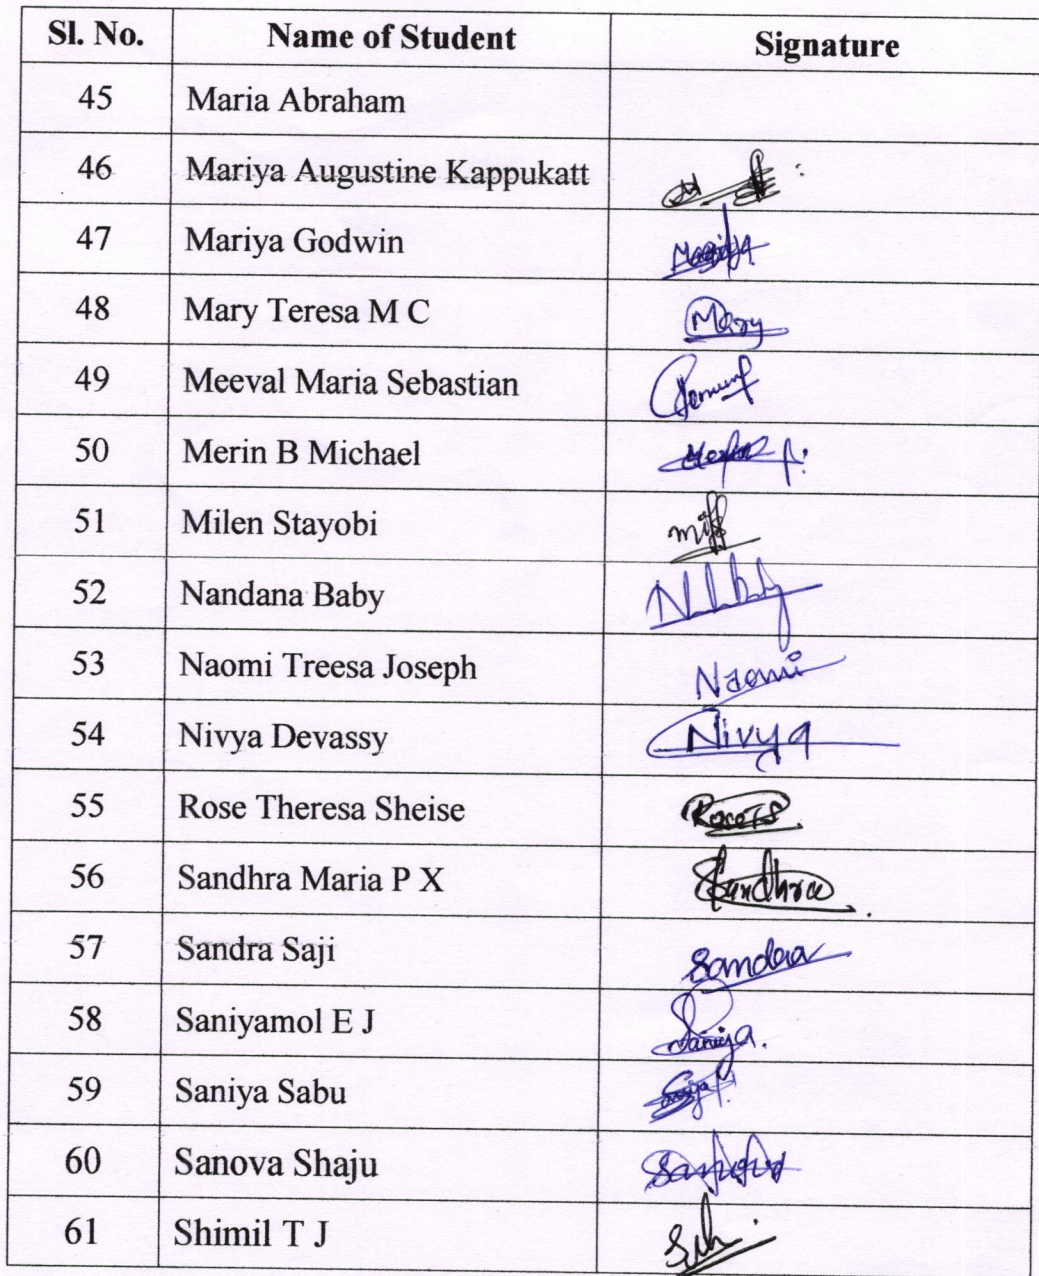 Sl. No. Name of Student Signature
45 Maria Abraham
46 Mariya Augustine Kappukatt
47 Mariya Godwin Mariya
48 Mary Teresa M C Mary
49 Meeval Maria Sebastian
50 Merin B Michael Merin
51 Milen Stayobi
52 Nandana Baby
53 Naomi Treesa Joseph Naomi
54 Nivya Devassy Nivya
55 Rose Theresa Sheise
56 Sandhra Maria P X Sandhra
57 Sandra Saji Sandra
58 Saniyamol E J Saniya.
59 Saniya Sabu
60 Sanova Shaju Sanova
61 Shimil T J